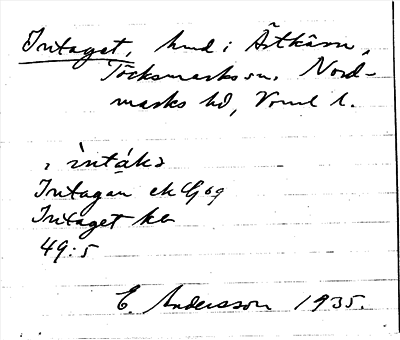 Intaget, hmd i Ätkärn,
Töcksmarks sn. Nord-
marks hd, Vrml l.
, ìntákə
Intagan ek G 69
Intaget kb
49:5
E. Andersson 1935.